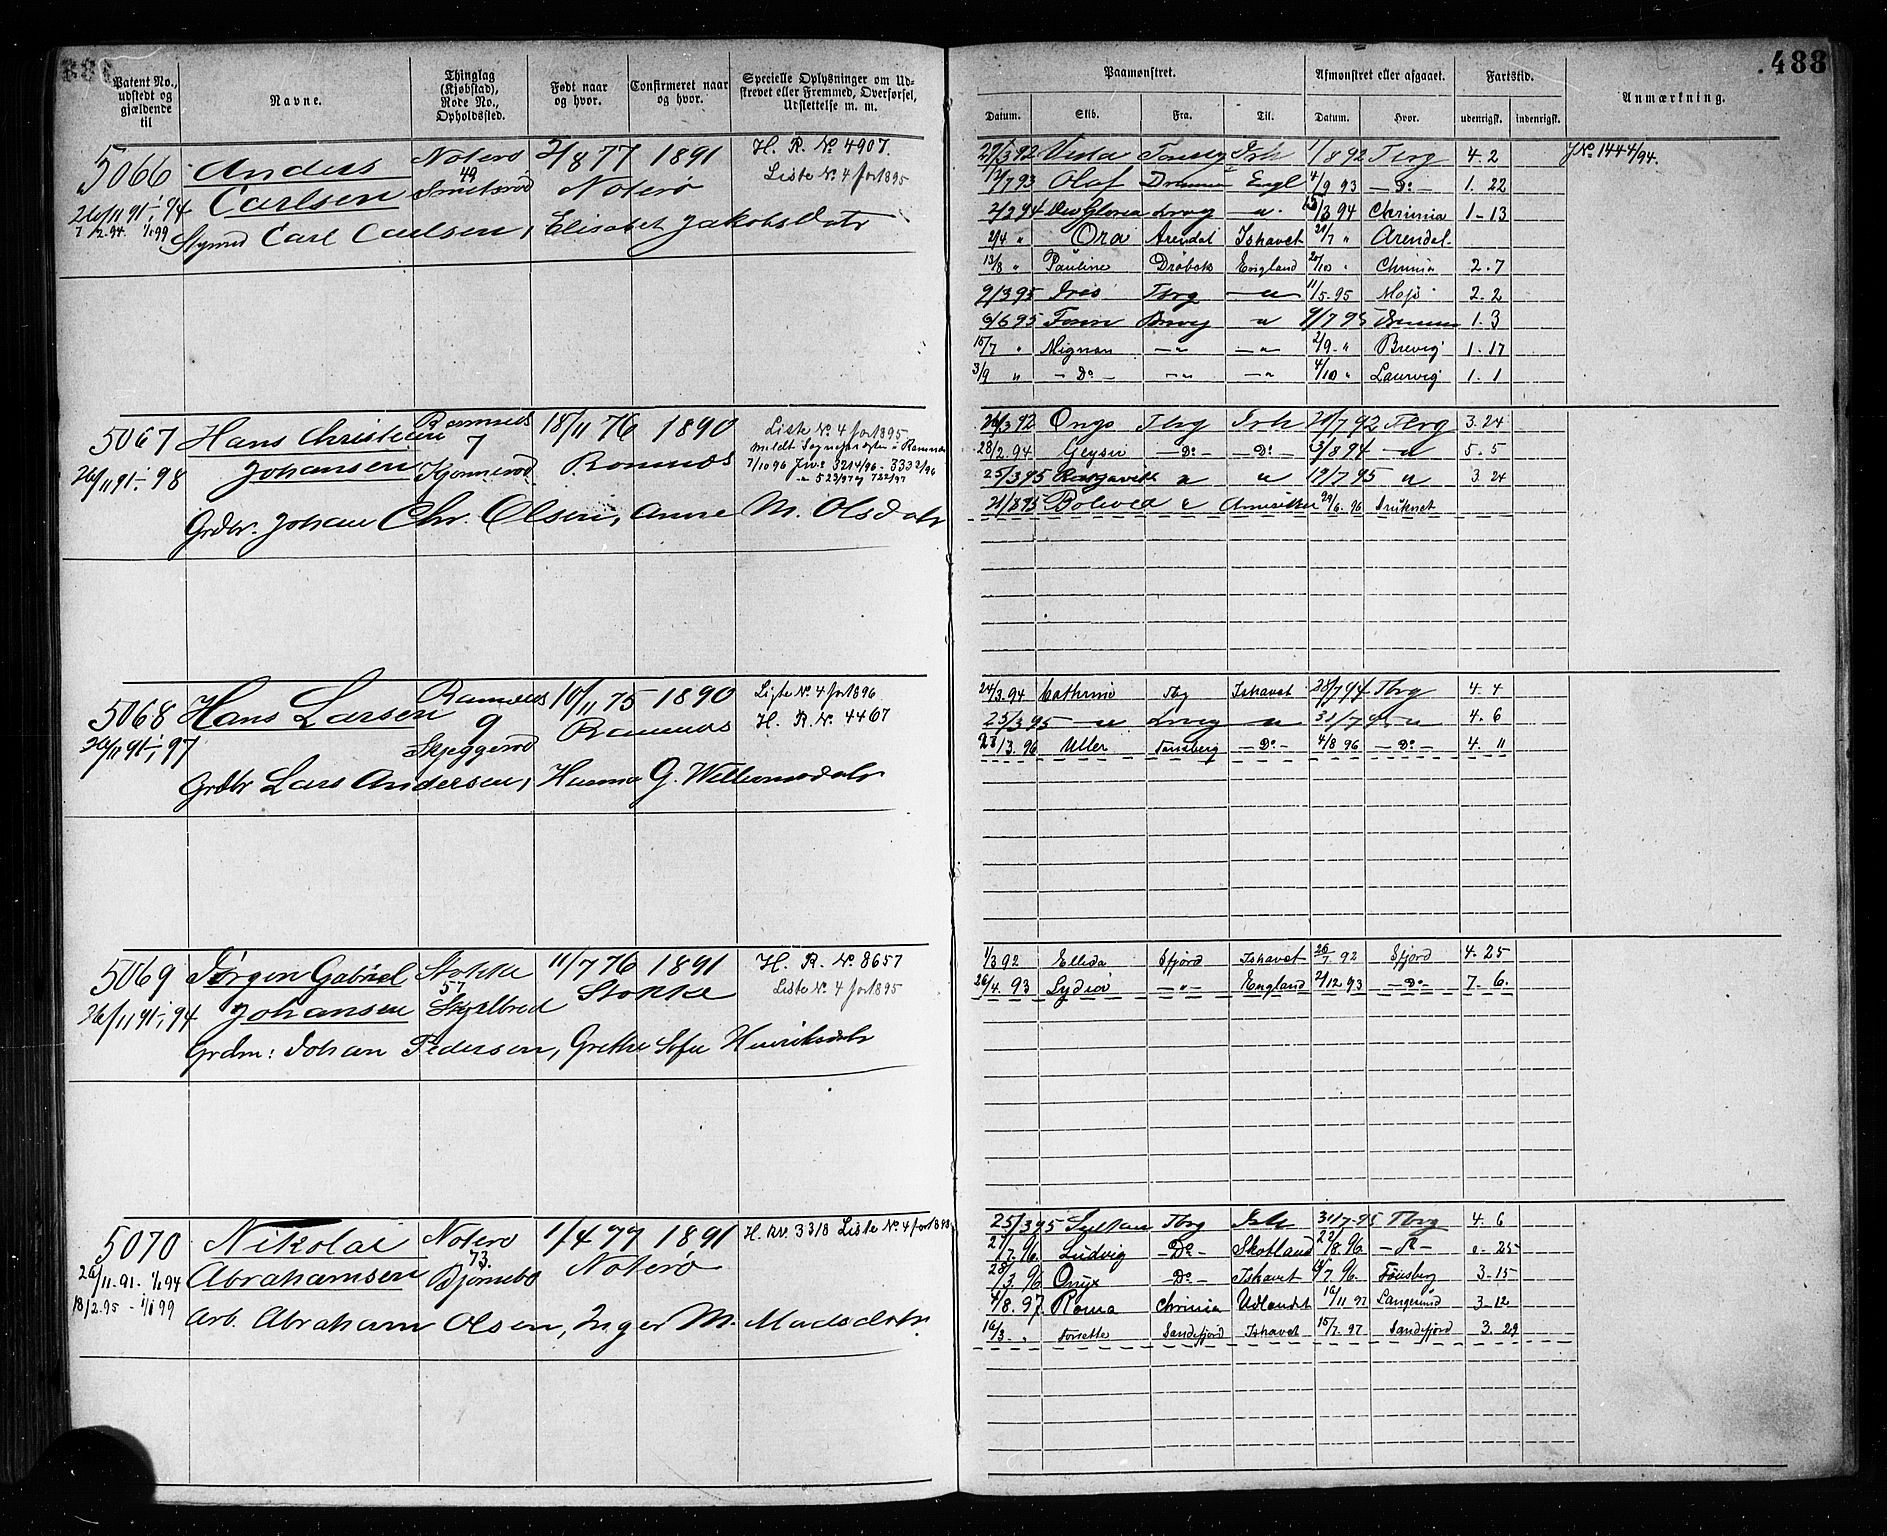 488
Patent No., udstedt og gjældende til
Navne.
Thinglag (Kjøbstad), Rode No., Opholdssted.
Født naar og hvor.
Confirmeret naar og hvor.
Specielle Oplysninger om Udstrevet eller Fremmed, Overførsel, Udslettelse m. m.
Paamønstret.
Afmønstret eller afgaaet.
Fartstid.
Anmærkning.
Datum. Skib. Fra. Til. Datum. Hvor. udenrigsk. indenrigsk.
5066 Anders Noterø 2/8 77 1891 H. R. No 4907.
49 Liste No 4 for 1895
Carlsen Noterø
26/11 91 - 1/1 94
1/1 99
Carl Carlsen, Elisabet Jakobsdatr
29/3 92 Vesta Ish 1/8 92 Tbrg 4. 2 JNo 1444/94.
12/7 93 Olaf Engl 4/9 93 — Do — 1. 22
2/2 94 Deo Gloria — " — /3 94 Chrinia 1 - 13
2/4 " Ora Arendal Ishavet 21/7 " Arendal
13/8 " Pauline Drøbak England 20/10 " Chrinia 2. 7
9/3 95 Iris Tbrg — " — 11/5. 95 Moss 2. 2
6/6 95 " 9/7 95 1. 3
15/7 " Mignon — " — — " 2/9. " Brevig 1. 17
3/9 " — Do — — " — — " 4/10 " Laurvig 1. 1
5067 Hans Christian Ramnes 18/11 76 1890 Liste No 4 for 1895
7
Johansen Ramnes 7/10 96 3214/96 - 3332/96
26/11 91 - 1/1 98 523/97 722/97
Grdbr. Johan Chr. Olsen, Anne M. Olsdatr
26/3 92 Ongo Tbrg Ish 21/7 92 Tbrg 3. 24
28/2 94 Geysir — Do — — Do — 3/8 94 — " 5. 5
25/3 95 " " 19/7 95 " 3 24
Bolivia " 29/6. 96
5068 Hans Larsen Ramnes 10/11 75 1890 Liste No 4 for 1896
9 Ramnes H. R. No. 4467
26/11 91 - 1/1 97 Skjeggerød
Grdbr Lars Andersen, Hanna G. Willumsdatr
24/3 94 Cathrine Tbg Ishavet 28/7 94 Tbrg 4. 4
25/3 95 — " — " 31/7 95 " 4. 6
23/3. 96 Uller Tønsberg — Do — 4/8 96 — Do — 4. 11
5069 Jørgen Gabriel Stokke 11/7 76 1891 H. R. No. 8657
57 Stokke Liste No. 4 for 1895
26/11 91 - 1/1 94 Johansen
Grdm: Johan Pedersen, Grethe Sofie Henriksdatr
1/3 92 Ellida Sfjord Ishavet 26/7 92 Sfjord 4. 25
26/4. 93 Lydia — " — England 2/12 93 — Do — 7. 6.
5070 Nikolai Noterø 1/4 77 1891 H. Rv. 3318 Liste No. 4 for
73.
26/11. 91. 1/1 94 Abrahamsen Bjørnebo Noterø
18/2. 95 - 1/1 99
Arb. Abraham Olsen, Inger M. Madsdatr
25/3 95 Sultan Tbrg Ish 31/7 95 Tbrg 4. 6
21/7. 96. Ludvig — Do — Skotland 22/8. 96 — Do — " . 25
28/3. 96 Onyx — Do — Ishavet /7 96. Tønsberg 3. 15
4/8. 97. Roma Chrinia Udlandet 16/11 97 Langesund 3. 12
16/3. " Sandefjord Ishavet 15/7. 97 Sandefjord 3. 29